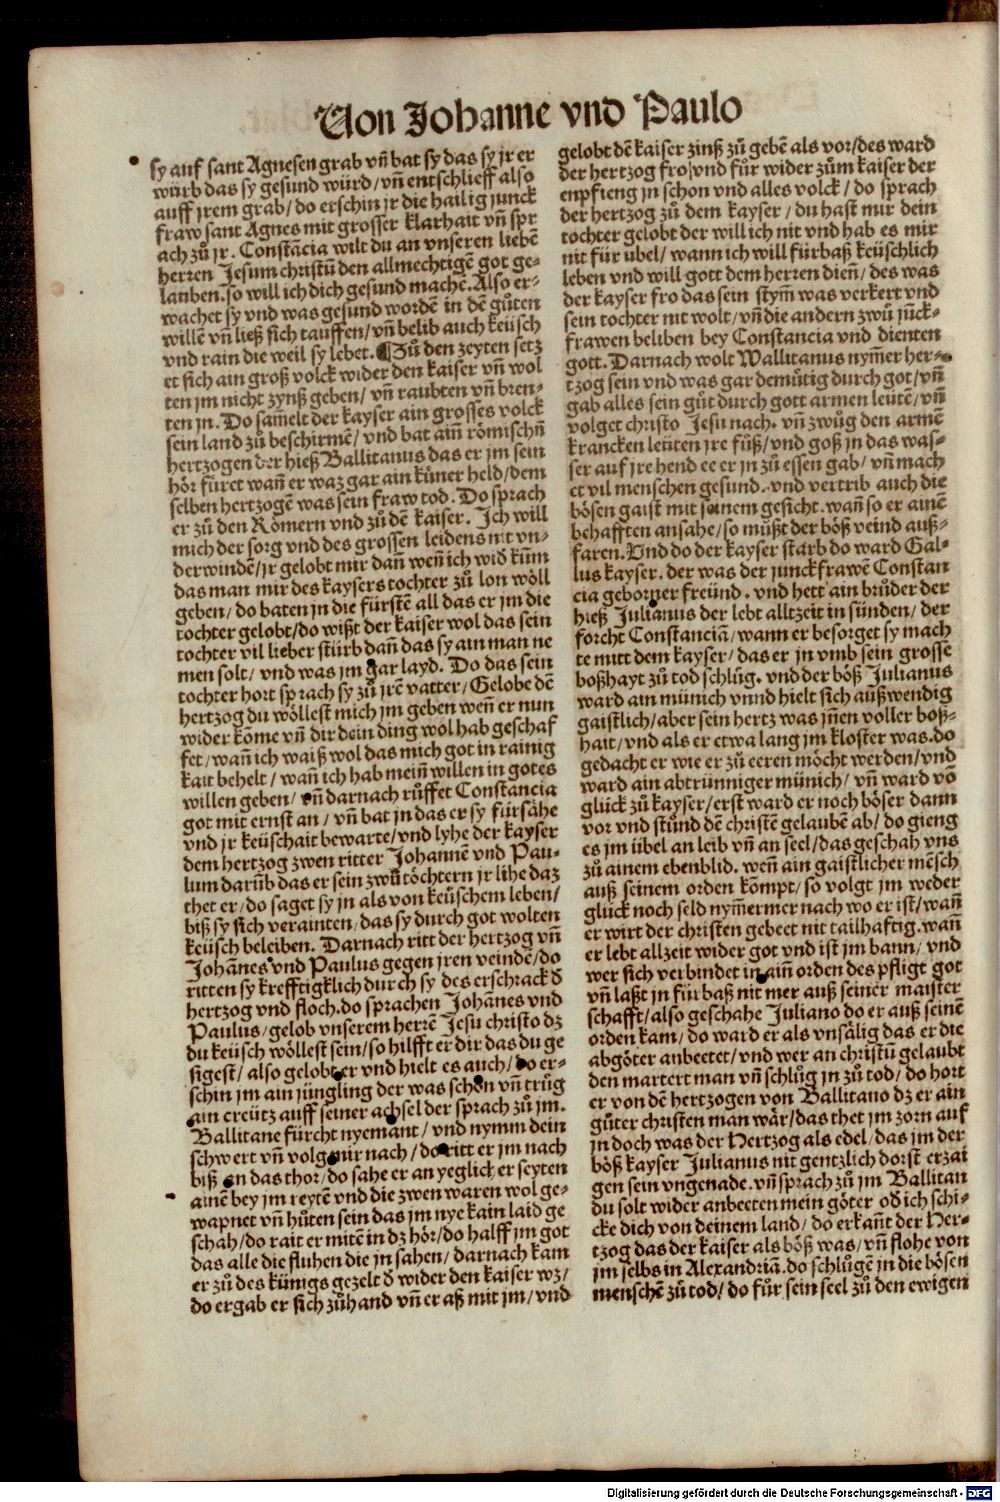 Von Johanne vnd Paulo
sy auf sant Agnesen grab vn̄ bat sy das sy jr er
wúrb das sy gesund wúrd/vn̄ entschlieff also
auff jrem grab/do erschin jr die hailig junck
fraw sant Agnes mit grosser klarhait vn̄ spr
ach zů jr. Constācia wilt du an vnseren liebē
herren Jesum christū den allmechtigē got ge-
lauben.so will ich dich gesund machē.Also er-
wachet sy vnd was gesund wordē in dē gůten
willē vn̄ ließ sich tauffen/vn̄ belib auch keüsch
vnd rain die weil sy lebet. ¶Zů den zeyten setz
et sich ain groß volck wider den kaiser vn̄ wol
ten jm nicht zynß geben/ vn̄ raubten vn̄ bren-
ten jn. Do sam̄elt der kayser ain grosses volck
sein land zů beschirmē/ vnd bat aim̄ römischn̄
hertzogen der hieß Ballitanus das er jm sein
hör füret wan̄ er waz gar ain küner held/dem
selben hertzogē was sein fraw tod. Do sprach
er zů den Römern vnd zů dē kaiser. Ich will
mich der sorg vnd des grossen leidens nit vn-
derwindē/jr gelobt mir dan̄ wen̄ ich wid̄ kūm
das man mir des kaysers tochter zů lon wöll
geben/ do baten jn die fürstē all das er jm die
tochter gelobt/do wißt der kaiser wol das sein
tochter vil lieber stürb dan̄ das sy ain man ne
men solt/ vnd was jm gar layd. Do das sein
tochter hort sprach sy zů jrē vatter/ Gelobe dē
hertzog du wöllest mich jm geben wen̄ er nun
wider kōme vn̄ dir dein ding wol hab geschaf
fet/ wan̄ ich waiß wol das mich got in rainig
kait behelt/ wan̄ ich hab mein̄ willen in gotes
willen geben/ vn̄ darnach růffet Constancia
got mit ernst an/ vn̄ bat jn das er sy fürsähe
vnd jr keüschait bewarte/vnd lyhe der kayser
dem hertzog zwen ritter Johannē vnd Pau-
lum darūb das er sein zwů töchtern jr lihe daz
thet er/do saget sy jn als von keüschem leben/
biß sy sich verainten/das sy durch got wolten
keüsch beleiben. Darnach ritt der hertzog vn̄
Johānes vnd Paulus gegen jren veindē/do
ritten sy krefftigklich durch sy des erschrack d̄
hertzog vnd floch.do sprachen Johānes vnd
Paulus/gelob vnserem herrē Jesu christo dz
du keüsch wöllest sein/so hilfft er dir das du ge
sigest/ also gelobt er vnd hielt es auch/ do er-
schin jm ain jüngling der was schön vn̄ trůg
ain creütz auff seiner achsel der sprach zů jm.
Ballitane fürcht nyemant/ vnd nymm dein
schwert vn̄ volg mir nach/do ritt er jm nach
biß an das thor/do sahe er an yeglicher seyten
ainē bey jm reytē vnd die zwen waren wol ge-
wapnet vn̄ hůten sein das jm nye kain laid ge
schah/do rait er mitē in dz hör/do halff jm got
das alle die fluhen die jn sahen/ darnach kam
er zů des künigs gezelt d̄ wider den kaiser wz/
do ergab er sich zůhand vn̄ er aß mit jm/vnd
gelobt dē kaiser zinß zů gebē als vor/des ward
der hertzog fro/vnd fůr wider zům kaiser der
enpfieng jn schon vnd alles volck/ do sprach
der hertzog zů dem kayser/du hast mir dein
tochter gelobt der will ich nit vnd hab es mir
nit für übel/ wann ich will fürbaß keüschlich
leben vnd will gott dem herren dien̄/ des was
der kayser fro das sein stym̄ was verkert vnd
sein tochter nit wolt/vn̄ die andern zwů jück-
frawen beliben bey Constancia vnd dienten
gott. Darnach wolt Wallitanus nym̄er her-
tzog sein vnd was gar demütig durch got/vn̄
gab alles sein gůt durch gott armen leütē/vn̄
volget christo Jesu nach. vn̄ zwůg den armē
krancken leüten jre füß/vnd goß jn das was-
ser auf jre hend ee er jn zů essen gab/ vn̄ mach
et vil menschen gesund.vnd vertrib auch die
bösen gaist mit seinem gesicht.wan̄ so er ainē
behafften ansahe/so můßt der böß veind auß-
faren.Vnd do der kayser starb do ward Gal-
lus kayser. der was der junckfrawē Constan
cia geborner freünd. vnd hett ain brůder der
hieß Julianus der lebt alltzeit in sünden/ der
forcht Constanciā/wann er besorget sy mach
te mitt dem kayser/das er jn vmb sein grosse
boßhayt zů tod schlůg. vnd der böß Julianus
ward ain münich vnnd hielt sich außwendig
gaistlich/aber sein hertz was jn̄en voller boß-
hait/vnd als er etwa lang jm kloster was.do
gedacht er wie er zů eeren möcht werden/vnd
ward ain abtrünniger münich/ vn̄ ward vō
glück zů kayser/erst ward er noch böser dann
vor vnd stůnd dē christē gelaubē ab/do gieng
es jm übel an leib vn̄ an seel/das geschah vns
zů ainem ebenblid. wen̄ ain gaistlicher mēsch
auß seinem orden kōmpt/so volgt jm weder
glück noch seld nym̄ermer nach wo er ist/wan̄
er wirt der christen gebeet nit tailhaftig.wan̄
er lebt allzeit wider got vnd ist jm bann/ vnd
wer sich verbindet in ain̄ orden des pfligt got
vn̄ laßt jn fürbaß nit mer auß seiner maister
schafft/also geschahe Juliano do er auß seinē
orden kam/do ward er als vnsälig das er die
abgöter anbeetet/vnd wer an christū gelaubt
den martert man vn̄ schlůg jn zů tod/do hort
er von dē hertzogen von Ballitano dz er ain
gůter christen man wär/das thet jm zorn auf
jn doch was der Hertzog als edel/das jm der
böß kayser Julianus nit gentzlich dorst erzai
gen sein vngenade.vn̄ sprach zů jm Ballitan
du solt wider anbeeten mein göter od̄ ich schi-
cke dich von deinem land/do erkan̄t der Her-
tzog das der kaiser als böß was/vn̄ flohe von
jm selbs in Alexandriā.do schlůgē jn die bösen
menschē zů tod/ do fůr sein seel zů den ewigen
Digitalisierung gefördert durch die Deutsche Forschungsgemeinschaft - DFG